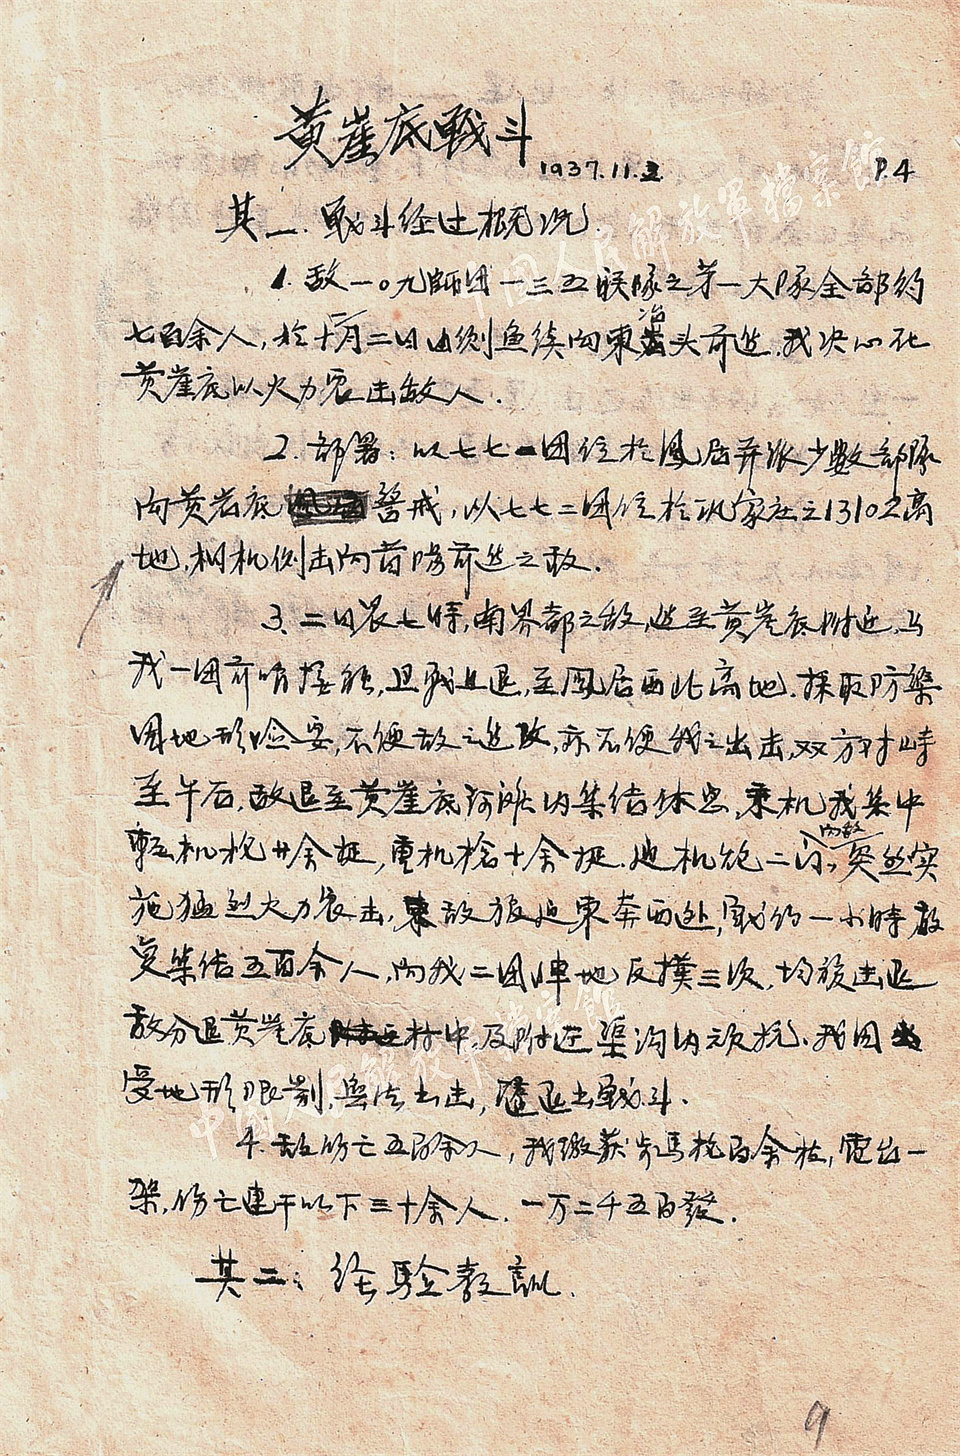 黄崖底戰斗
1937.11.2 P.4
其一.戰斗经过概况.
1.敌一〇九師团一三五联隊之第一大隊全部约
七百余人，於十一月二日由側鱼续向東冶头前进.我决心在
黄崖底以火力袭击敌人.
2.部署：以七七一团位於凤居并派少数部隊
向黄岩底警戒，以七七二团位於巩家庄之1310.2高
地，相机侧击向昔陽前进之敌.
3、二日晨七時，南界都之敌，进至黄崖底附近，与
我一团前哨接触，且戰且退，至凤居西北高地.採取防禦
因地形险要，不便敌之进攻，亦不便我之出击，双方对峙
至午后，敌退至黄崖底河滩内集结休息，乘机我集中
輕机枪廿余挺，重机枪十余挺.迫机炮二门，向敌突然实
施猛烈火力袭击，敌狼狈東奔西逃，戰约一小時敌
复集结五百余人，向我二团陣地反撲三次，均被击退
敌分退黄崖底村中，及附近渠沟内顽抗.我因
受地形限制，無法出击，遂退出戰斗.
4.敌伤亡五百余人，我缴获步馬枪百余枝，電台一
架，伤亡連干以下三十余人.一万二千五百發.
其二：经驗教訓.
9
中國人民解放軍檔案館
中國人民解放軍檔案館